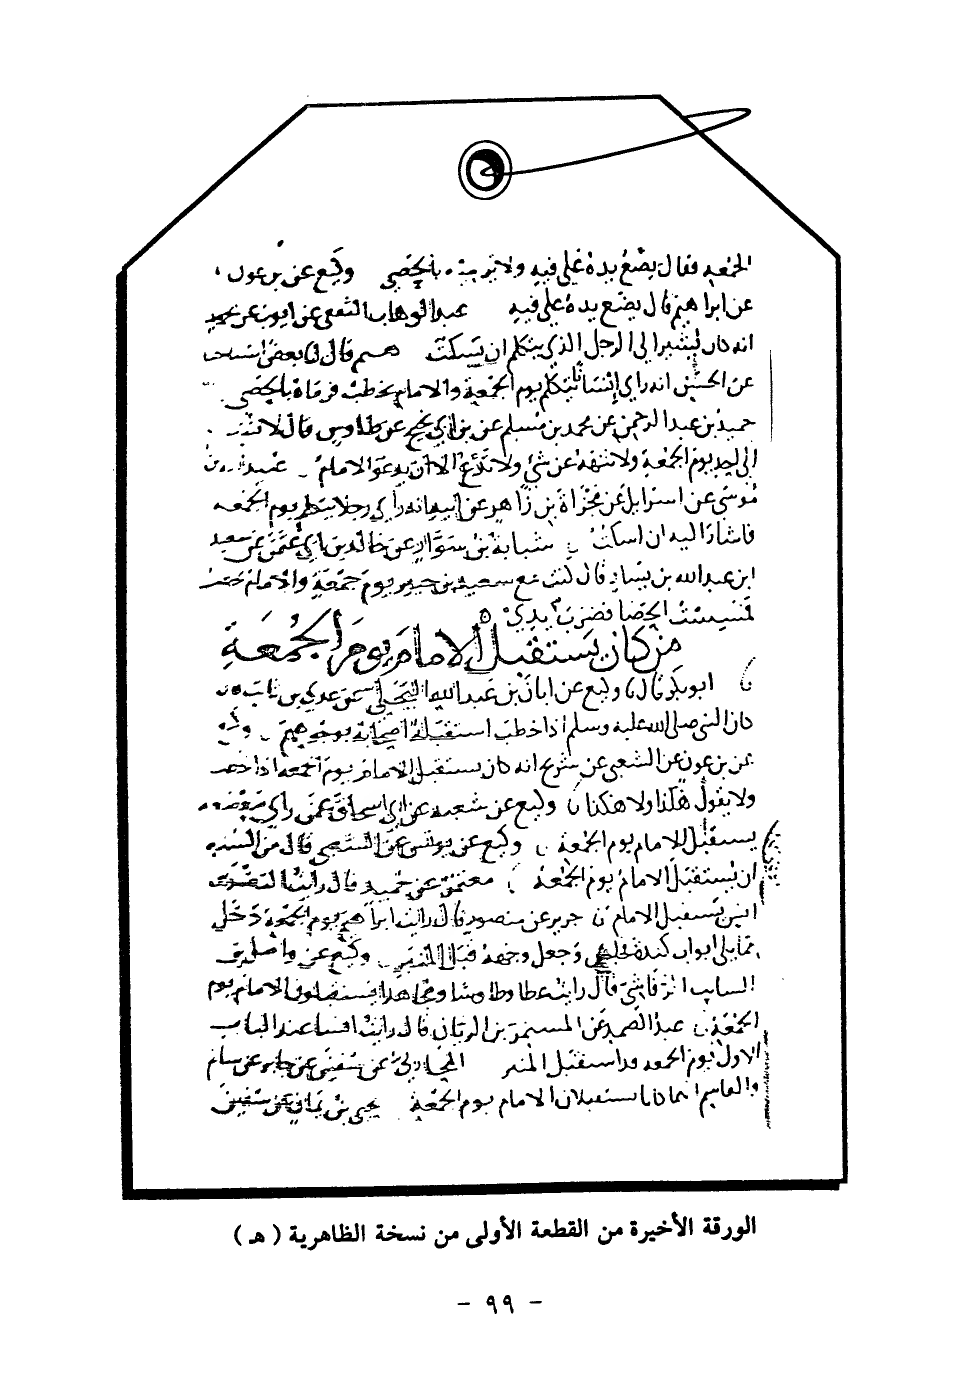 الجمعه فقال يضع يده على فيه ولا يرميه بالحصى وكيع عن بن عون
عن ابراهيم قال يضع يده على فيه عبد الوهاب الثقفي عن ايوب عن محمد
انه كان يشير الى الرجل الذي يتكلم ان يسكت قال بعض
عن الحسن انه راي إنسانا يتكلم يوم الجمعة والامام يخطب فرماه بالحصى
حميد بن عبد الرحمن عن محمد بن مسلم عن بن ابي نجيح عن طاوس قال لا تشر
الى احد يوم الجمعة ولا تنهه عن شي ولا تدع الا ان يدعو الامام عبيد الله بن
موسى عن اسرايل عن مجزاة بن زاهر عن ابيه انه راى رجلا يوم الجمعه
فاشار اليه ان اسكت شبابة بن سوار عن خالد بن ابي عثمن عن سعيد
ابن عبد الله بن يسار قال كنت مع سعيد بن جبير يوم جمعة والامام يخطب
فمسست الحصا فضرب يدي
من كان يستقبل الامام يوم الجمعة
ابو بكر قال وكيع عن ابان بن عبد الله البجلي عن عدي بن ثابت
كان النبي صلى الله عليه وسلم اذا خطب استقبله اصحابه بوجوههم وكيع
عن بن عون عن الشعبي عن شريح انه كان يستقبل الامام يوم الجمعه اذا خطب
ولا يقول هكذا ولا هكذا وكيع عن شعبه عن ابي اسحاق عمن راى
يستقبل الامام يوم الجمعة وكيع عن يونس عن الشعبي قال من السنه
ان يستقبل الامام يوم الجمعة معتمر عن حميد قال رايت
انس يستقبل الامام جرير عن منصور قال رايت ابراهيم يوم الجمعة دخل
ابواب كندة وجعل وجهه قبل المنبر وكيع عن واصل بن
السايب الرقاشي قال رايت عطا وطاوسا ومجاهدا يستقبلون الامام يوم
الجمعة عبد الصمد عن المستمر بن الريان قال رايت انسا عند الباب
الاول يوم الجمعه قد استقبل المنبر المحاربي عن سفين عن جابر عن سالم
والقاسم انهما كانا يستقبلان الامام يوم الجمعة يحيى بن يمان عن سفين
الورقة الأخيرة من القطعة الأولى من نسخة الظاهرية ( هـ )
- ٩٩ -